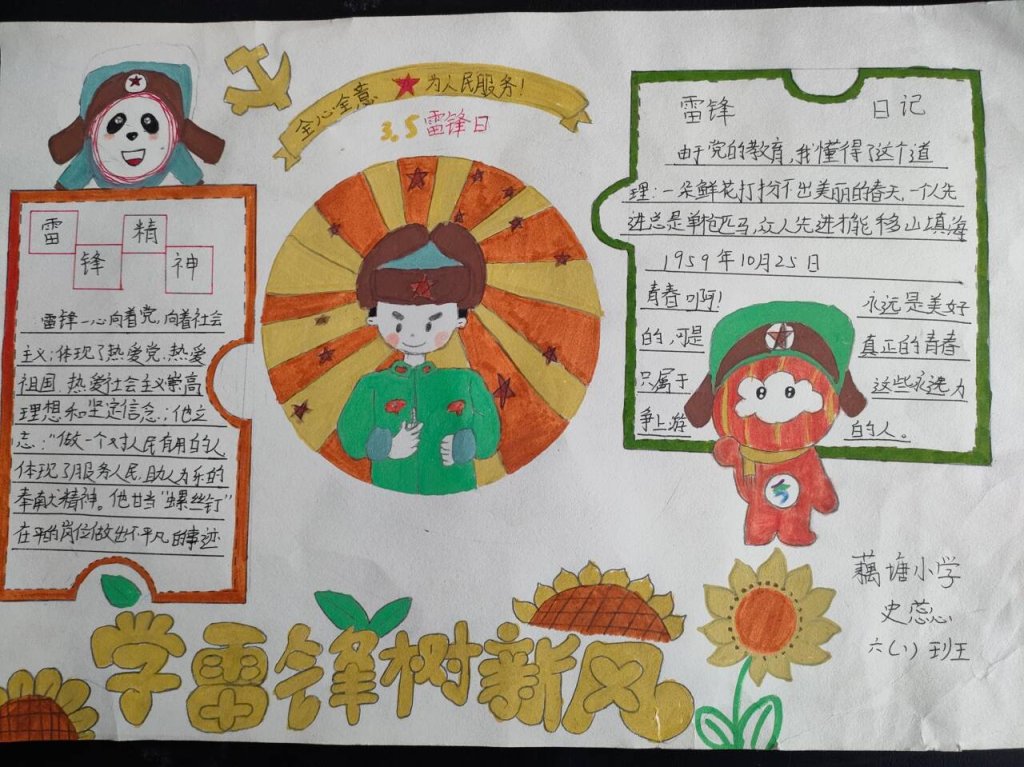 全心全意 为人民服务!
3.5 雷锋日
雷锋精神
雷锋一心向着党,向着社会
主义;体现了热爱党、热爱
祖国、热爱社会主义崇高
理想和坚定信念;他立
志:"做一个对人民有用的人
体现了服务人民,助人为乐的
奉献精神。他甘当"螺丝钉"
在平的岗位做出不平凡的事迹
雷锋 日记
由于党的教育,我懂得了这个道
理:一朵鲜花打扮不出美丽的春天,一个人先
进总是单枪匹马,众人先进才能移山填海
1959年10月25日
青春啊! 永远是美好
的,可是 真正的青春
只属于 这些永远力
争上游 的人。
学雷锋树新风
藕塘小学
史蕊
六(1)班